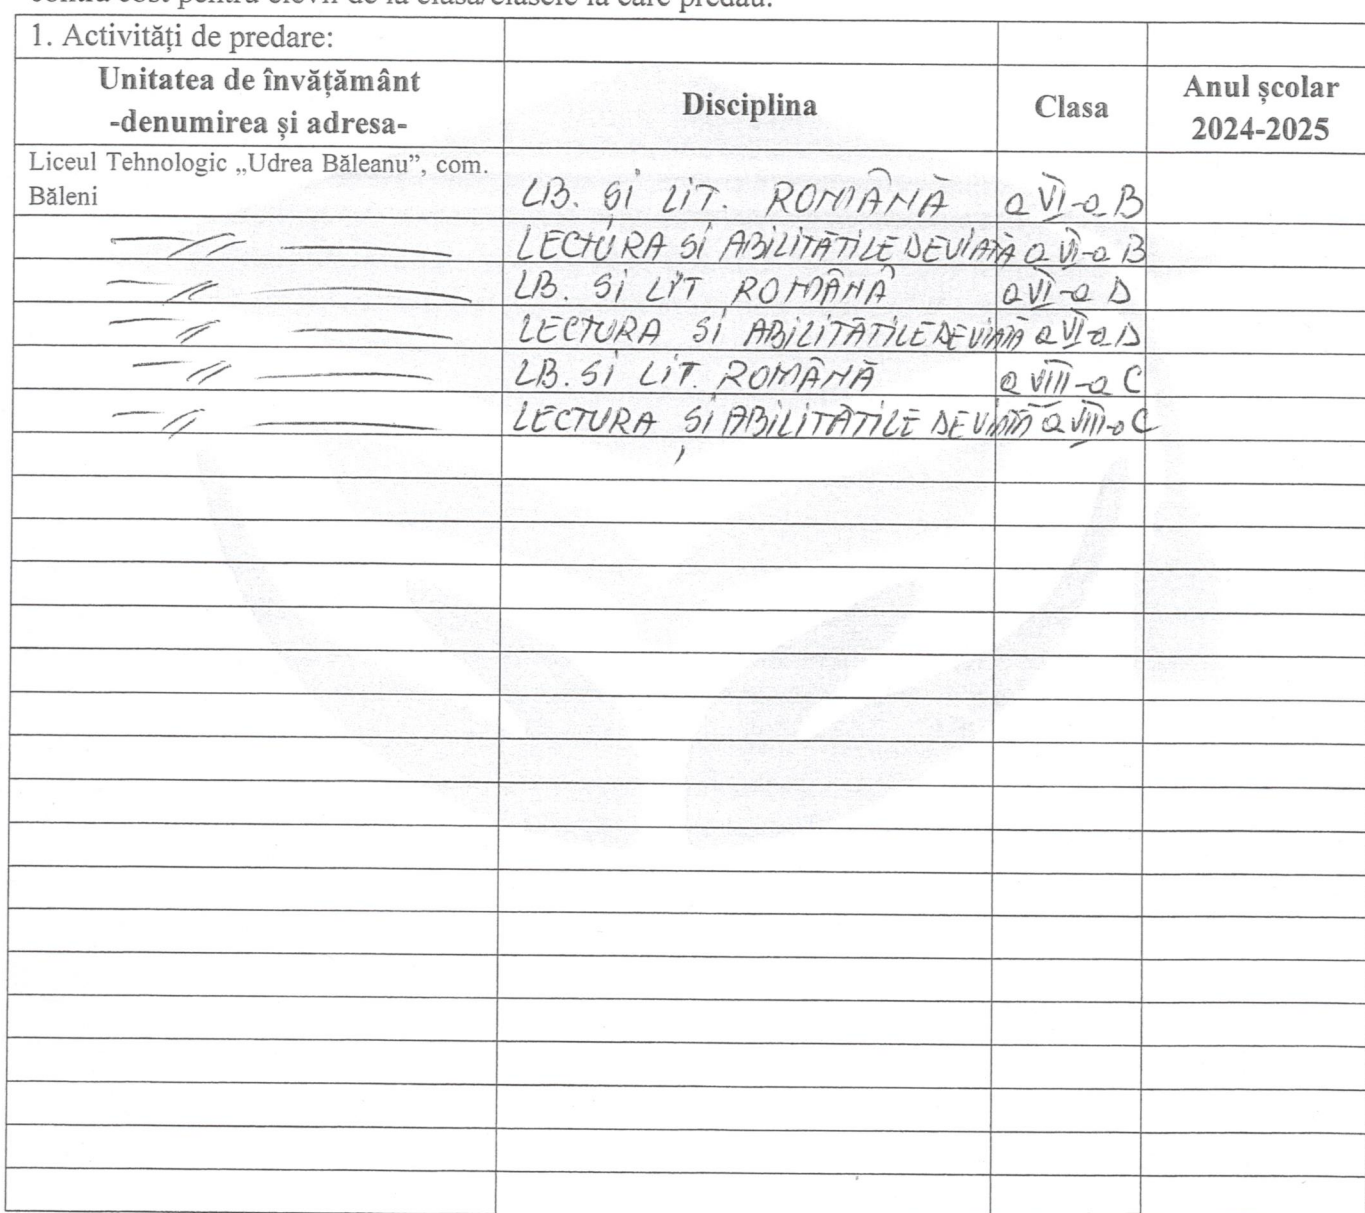 contra cost pentru elevii de la clasa/clasele la care predau.
1. Activități de predare:
Unitatea de învățământ
-denumirea și adresa-
Disciplina
Clasa
Anul școlar
2024-2025
Liceul Tehnologic „Udrea Băleanu”, com.
Băleni
LB. ȘI LIT. ROMÂNĂ a VI-a B
—〃— LECTURA SI ABILITĂTILE DE VIATĂ a VI-a B
—〃— LB. SI LIT ROMÂNĂ a VI-a D
—〃— LECTURA SI ABILITĂTILE DE VIATĂ a VI-a D
—〃— LB. SI LIT. ROMÂNĂ a VIII-a C
—〃— LECTURA ȘI ABILITĂTILE DE VIATĂ a VIII-a C